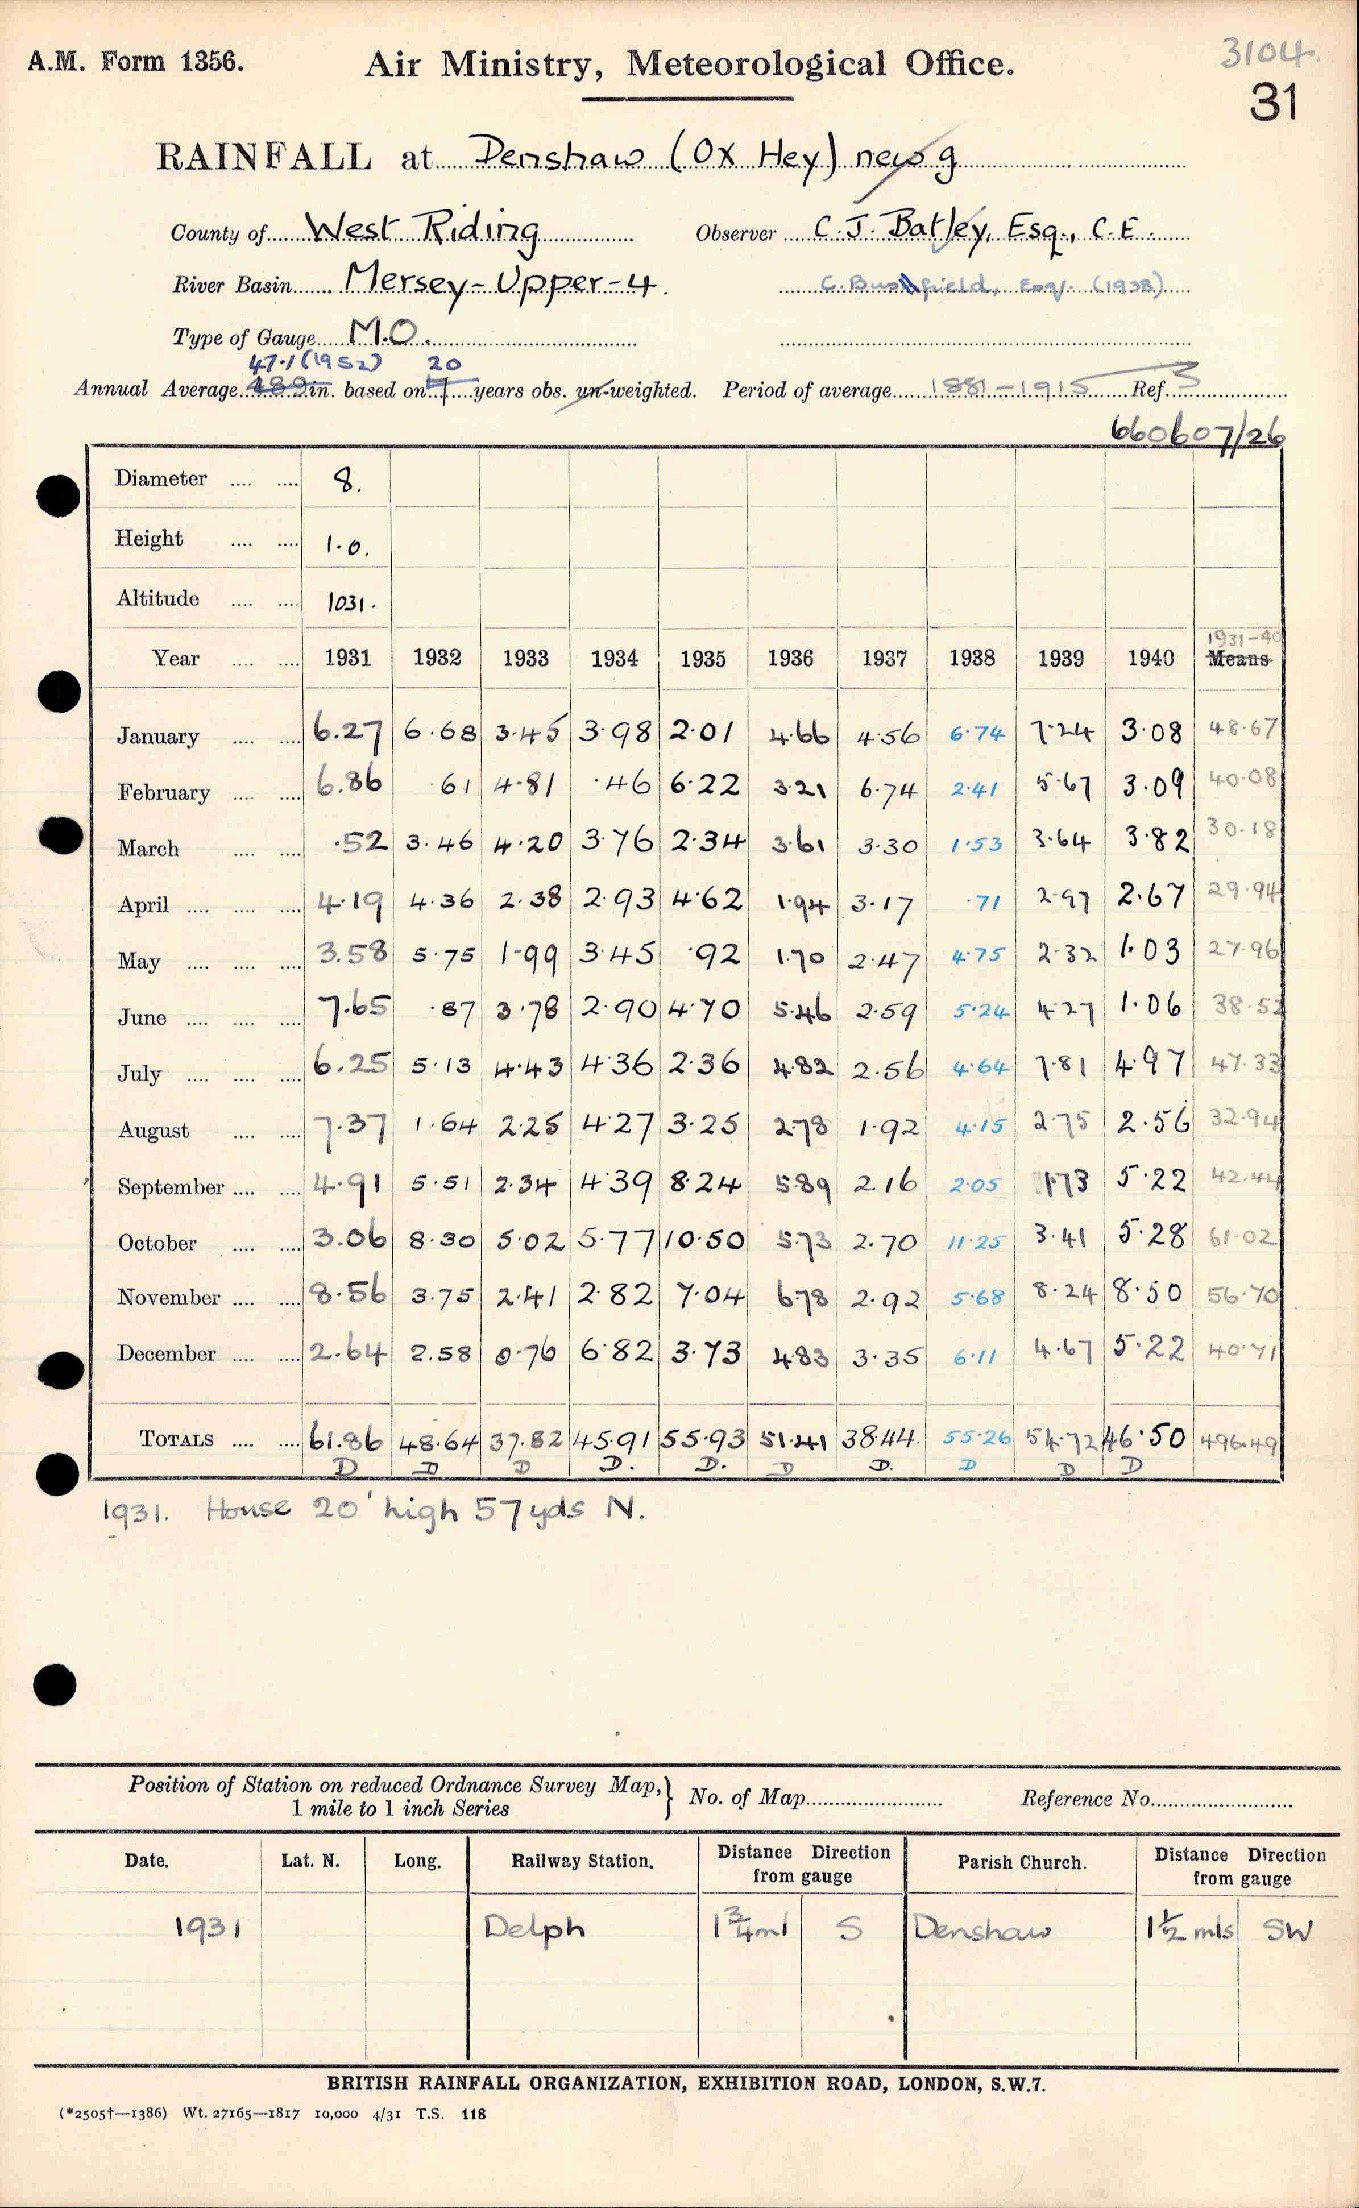 3104.
A.M. Form 1356. Air Ministry, Meteorological Office.
31
RAINFALL at Denshaw (Ox Hey) new g
County of West Riding Observer C. J. Batley, Esq., C.E.
River Basin Mersey - Upper - 4. Esq. (1938)
Type of Gauge M.O.
47.1 (1952) 20
Annual Average 48.9 in. based on 7 years obs. un-weighted. Period of average 1881-1915 Ref. 3
660607/26
Diameter .... .... 8.
Height .... .... 1.0.
Altitude .... .... 1031.
1931-40
Year .... .... 1931 1932 1933 1934 1935 1936 1937 1938 1939 1940 Means
January .... .... 6.27 6.68 3.45 3.98 2.01 4.66 4.56 6.74 7.24 3.08 48.67
February .... .... 6.86 .61 4.81 .46 6.22 3.21 6.74 2.41 5.67 3.09 40.08
March .... .... .52 3.46 4.20 3.76 2.34 3.61 3.30 1.53 3.64 3.82 30.18
April .... .... .... 4.19 4.36 2.38 2.93 4.62 1.94 3.17 .71 2.97 2.67 29.94
May .... .... .... 3.58 5.75 1.99 3.45 .92 1.70 2.47 4.75 2.32 1.03 27.96
June .... .... .... 7.65 .87 3.78 2.90 4.70 5.46 2.59 5.24 4.27 1.06 38.52
July .... .... .... 6.25 5.13 4.43 4.36 2.36 4.82 2.56 4.64 7.81 4.97 47.33
August .... .... 7.37 1.64 2.25 4.27 3.25 2.78 1.92 4.15 2.75 2.56 32.94
September .... .... 4.91 5.51 2.34 4.39 8.24 5.89 2.16 2.05 1.73 5.22 42.44
October .... .... 3.06 8.30 5.02 5.77 10.50 5.73 2.70 11.25 3.41 5.28 61.02
November .... .... 8.56 3.75 2.41 2.82 7.04 6.78 2.92 5.68 8.24 8.50 56.70
December .... .... 2.64 2.58 0.76 6.82 3.73 4.83 3.35 6.11 4.67 5.22 40.71
TOTALS .... .... 61.86 48.64 37.82 45.91 55.93 51.41 38.44. 55.26 54.72 46.50 496.49
D D D D. D. D D. D D D
1931. House 20' high 57 yds N.
Position of Station on reduced Ordnance Survey Map, } No. of Map Reference No.
1 mile to 1 inch Series
Date. Lat. N. Long. Railway Station. Distance Direction from gauge Parish Church. Distance Direction from gauge
1931 Delph 1 3/4 ml S Denshaw 1 1/2 mls SW
BRITISH RAINFALL ORGANIZATION, EXHIBITION ROAD, LONDON, S.W.7.
(*2505†—1386) Wt. 27165—1817 10,000 4/31 T.S. 118